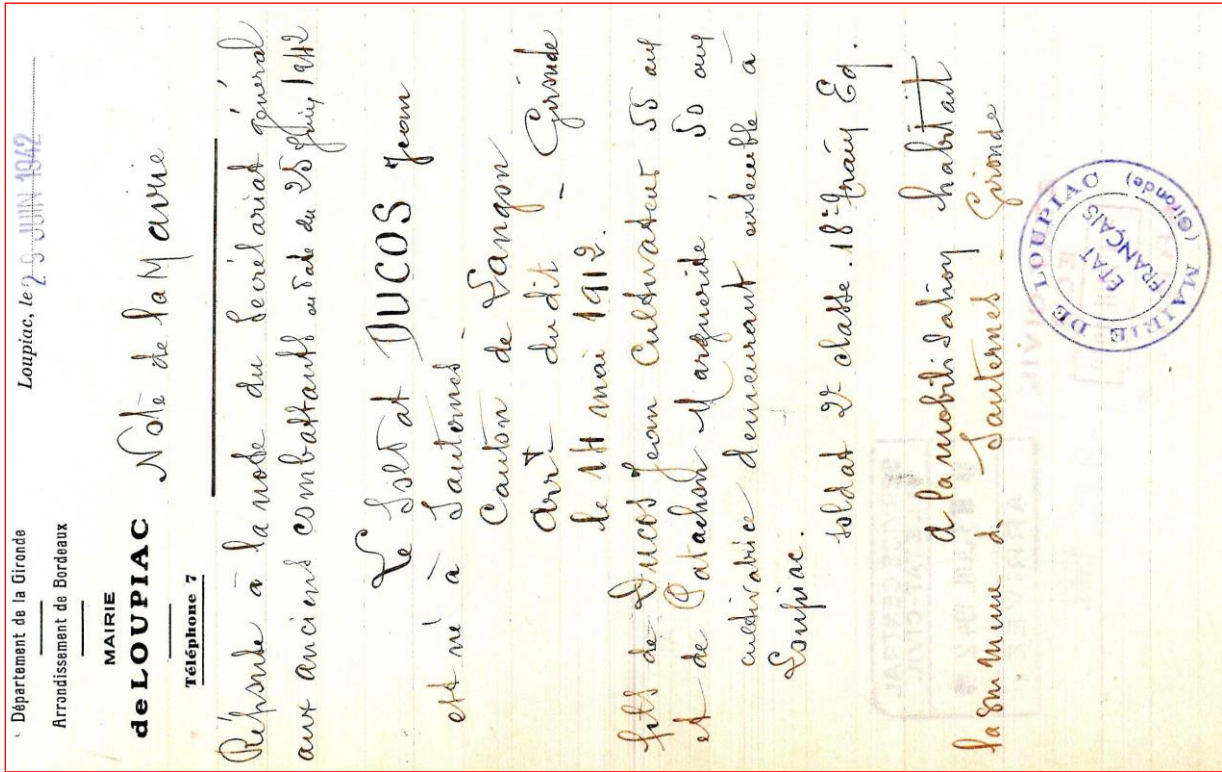 Département de la Gironde
Arrondissement de Bordeaux
MAIRIE
de LOUPIAC
Téléphone 7
Loupiac, le 29 JUIN 1942
Note de la Mairie
Réponse à la note du Secrétariat général
aux anciens combattants en date du 25 juin 1942
Le Soldat DUCOS Jean
est né à Sauternes
Canton de Langon
arrt dudit - Gironde
le 14 mai 1912.
fils de Ducos Jean Cultivateur 55 ans
et de Patachon Marguerite, 50 ans
cultivatrice demeurant ensemble à
Loupiac.
soldat 2e classe. 18e Eq.
a la mobilisation habitait
la commune de Sauternes Gironde
MAIRIE DE LOUPIAC
(Gironde)
ETAT
FRANÇAIS
ARRIVÉE
JUIL 1942
ETAT CIVIL
CENTRAL